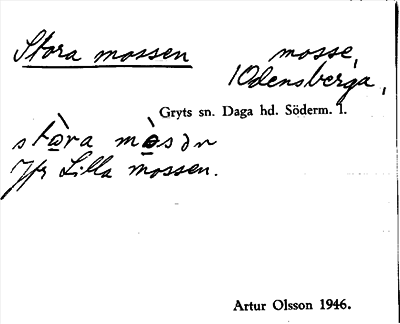 Stora mossen mosse,
Odensberga,
Gryts sn. Daga hd. Söderm. l.
Jfr Lilla mossen.
Artur Olsson 1946.